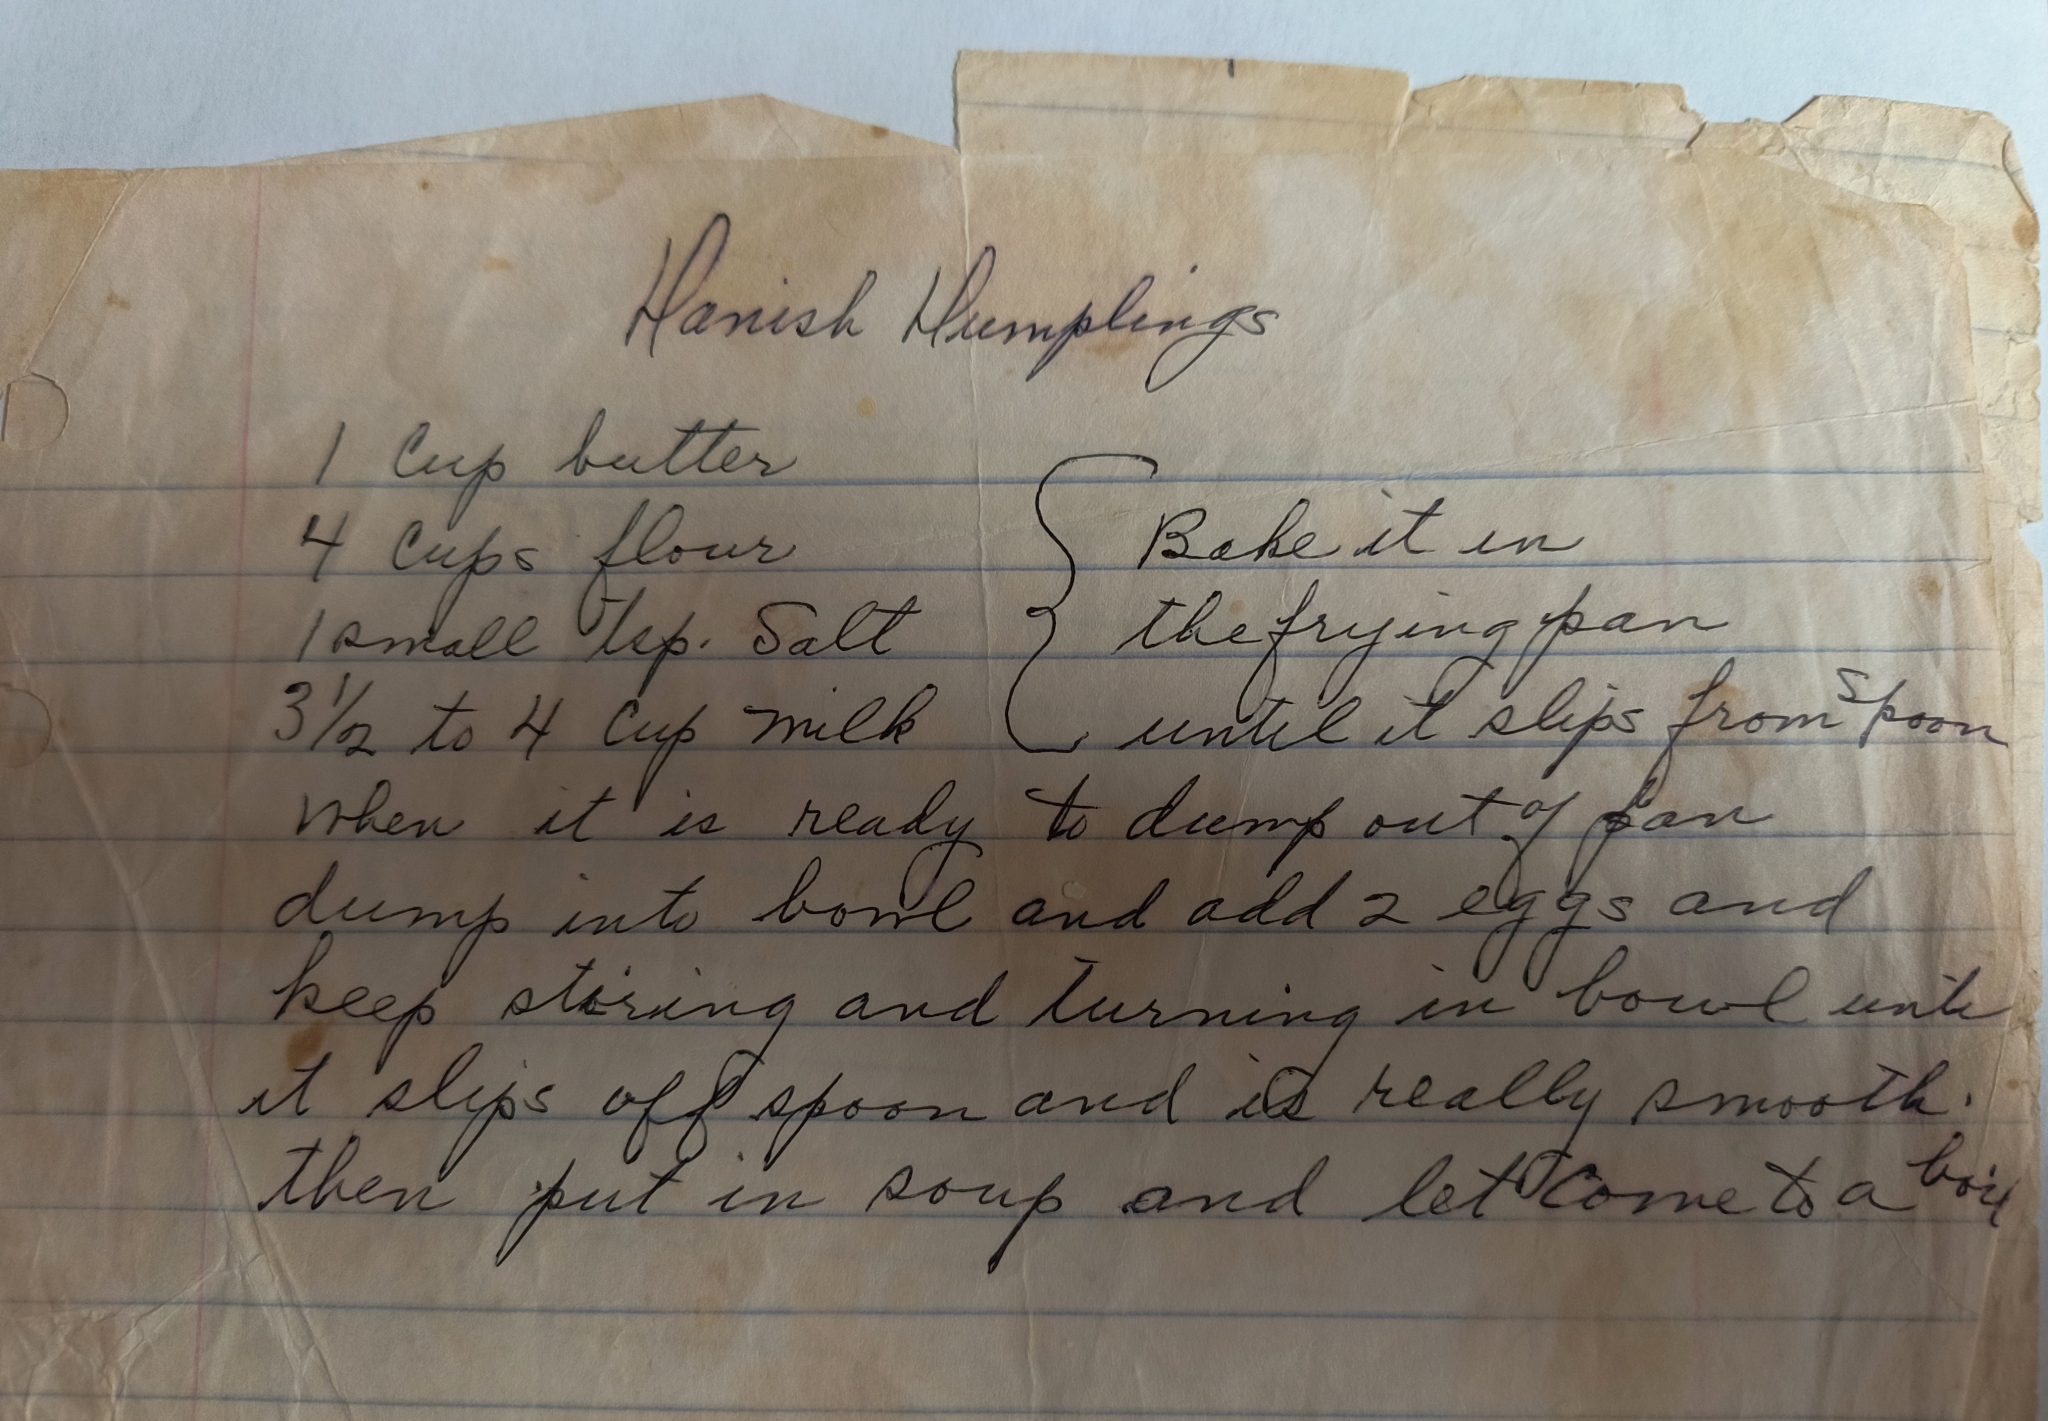 Danish Dumplings
1 Cup butter
4 Cups flour
1 small tsp. Salt
3 1/2 to 4 Cup milk
Bake it in
the frying pan
until it slips from spoon
when it is ready to dump out of pan
dump into bowl and add 2 eggs and
keep stiring and turning in bowl until
it slips off spoon and is really smooth.
then put in soup and let come to a boil